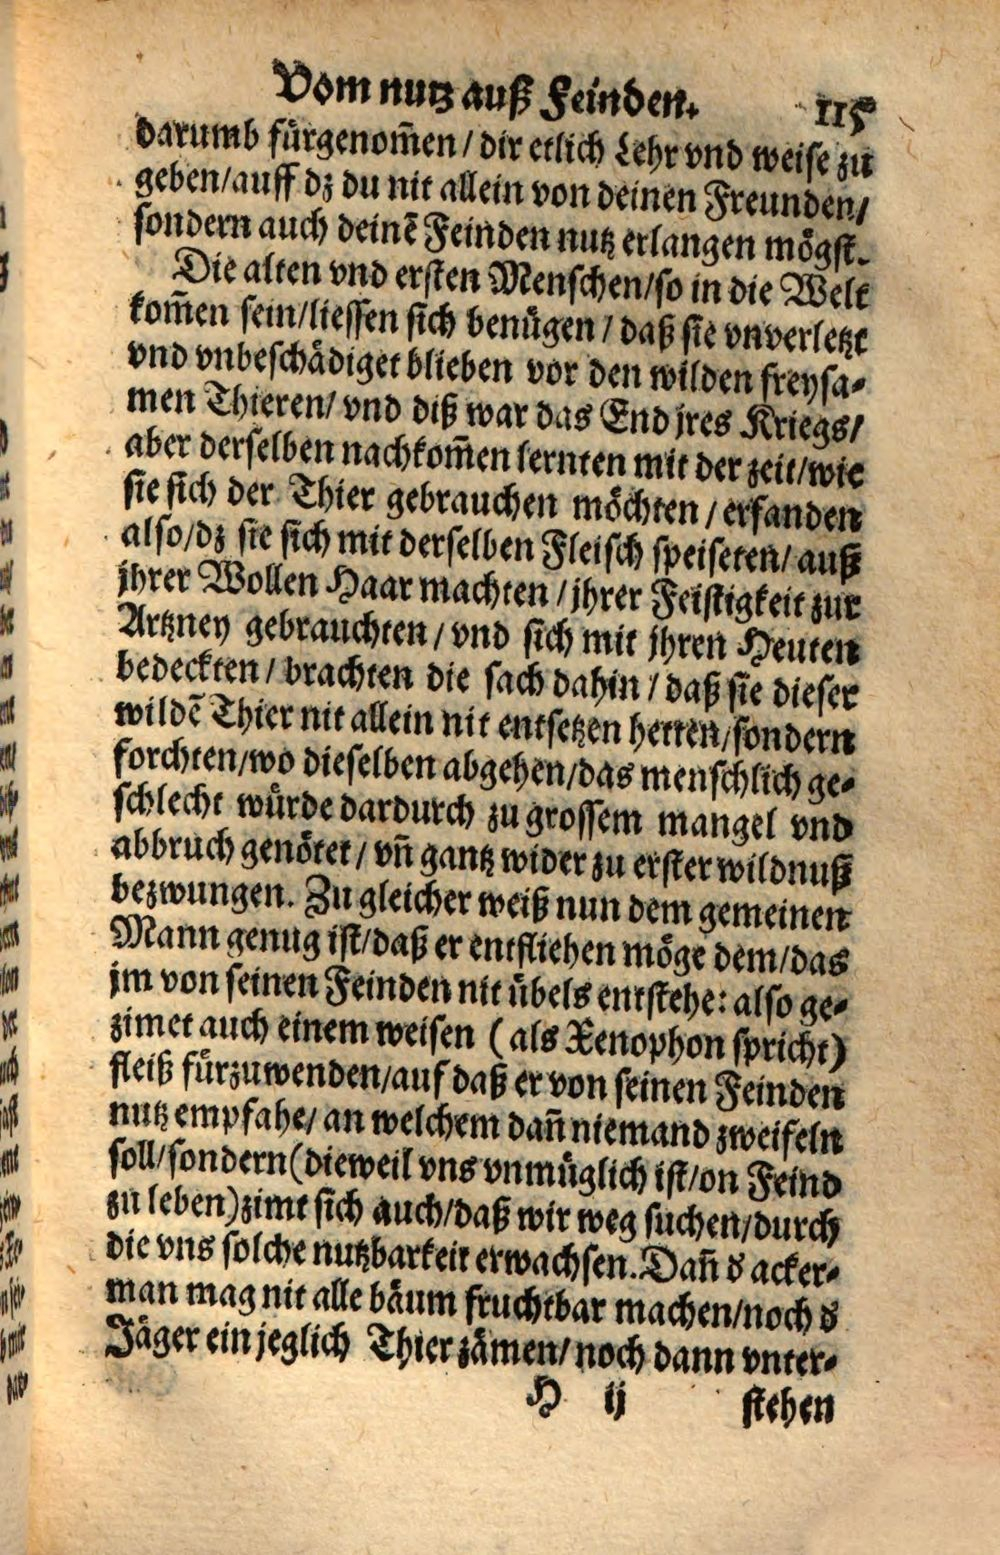 Vom nutz auß Feinden. 115
darumb fürgenom̃en / dir etlich Lehr vnd weise zu
geben/auff dz du nit allein von deinen Freunden/
sondern auch deinẽ Feinden nutz erlangen mögst.
Die alten vnd ersten Menschen/so in die Welt
kom̃en sein/liessen sich benügen / daß sie vnverletzt
vnd vnbeschädiget blieben vor den wilden freysa-
men Thieren/ vnd diß war das End jres Kriegs/
aber derselben nachkom̃en lernten mit der zeit/wie
sie sich der Thier gebrauchen möchten / erfanden
also/dz sie sich mit derselben Fleisch speiseten/ auß
jhrer Wollen Haar machten / jhrer Feistigkeit zur
Artzney gebrauchten / vnd sich mit jhren Heuten
bedeckten / brachten die sach dahin / daß sie dieser
wildẽ Thier nit allein nit entsetzen hetten/sondern
forchten/wo dieselben abgehen/das menschlich ge-
schlecht würde dardurch zu grossem mangel vnd
abbruch genötet / vñ gantz wider zu erster wildnuß
bezwungen. Zu gleicher weiß nun dem gemeinen
Mann genug ist/daß er entfliehen möge dem/das
jm von seinen Feinden nit übels entstehe: also ge-
zimet auch einem weisen ( als Xenophon spricht)
fleiß fürzuwenden/auf daß er von seinen Feinden
nutz empfahe/ an welchem dañ niemand zweifeln
soll/sondern(dieweil vns vnmüglich ist/on Feind
zu leben)zimt sich auch/daß wir weg suchen/durch
die vns solche nutzbarkeit erwachsen. Dañ d' acker-
man mag nit alle bäum fruchtbar machen/noch d'
Jäger ein jeglich Thier zämen/ noch dann vnter-
H ij stehen